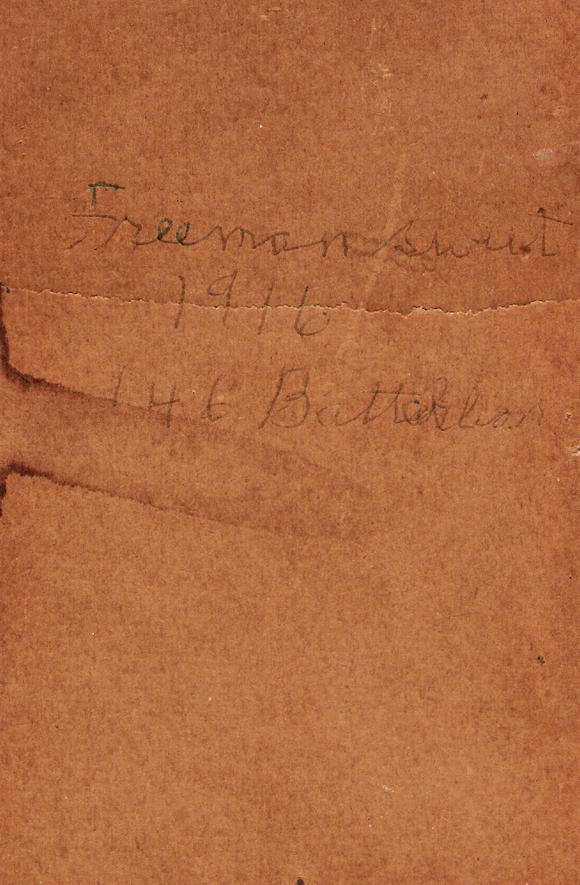 Freeman Sweet
1916
146 Battaleian